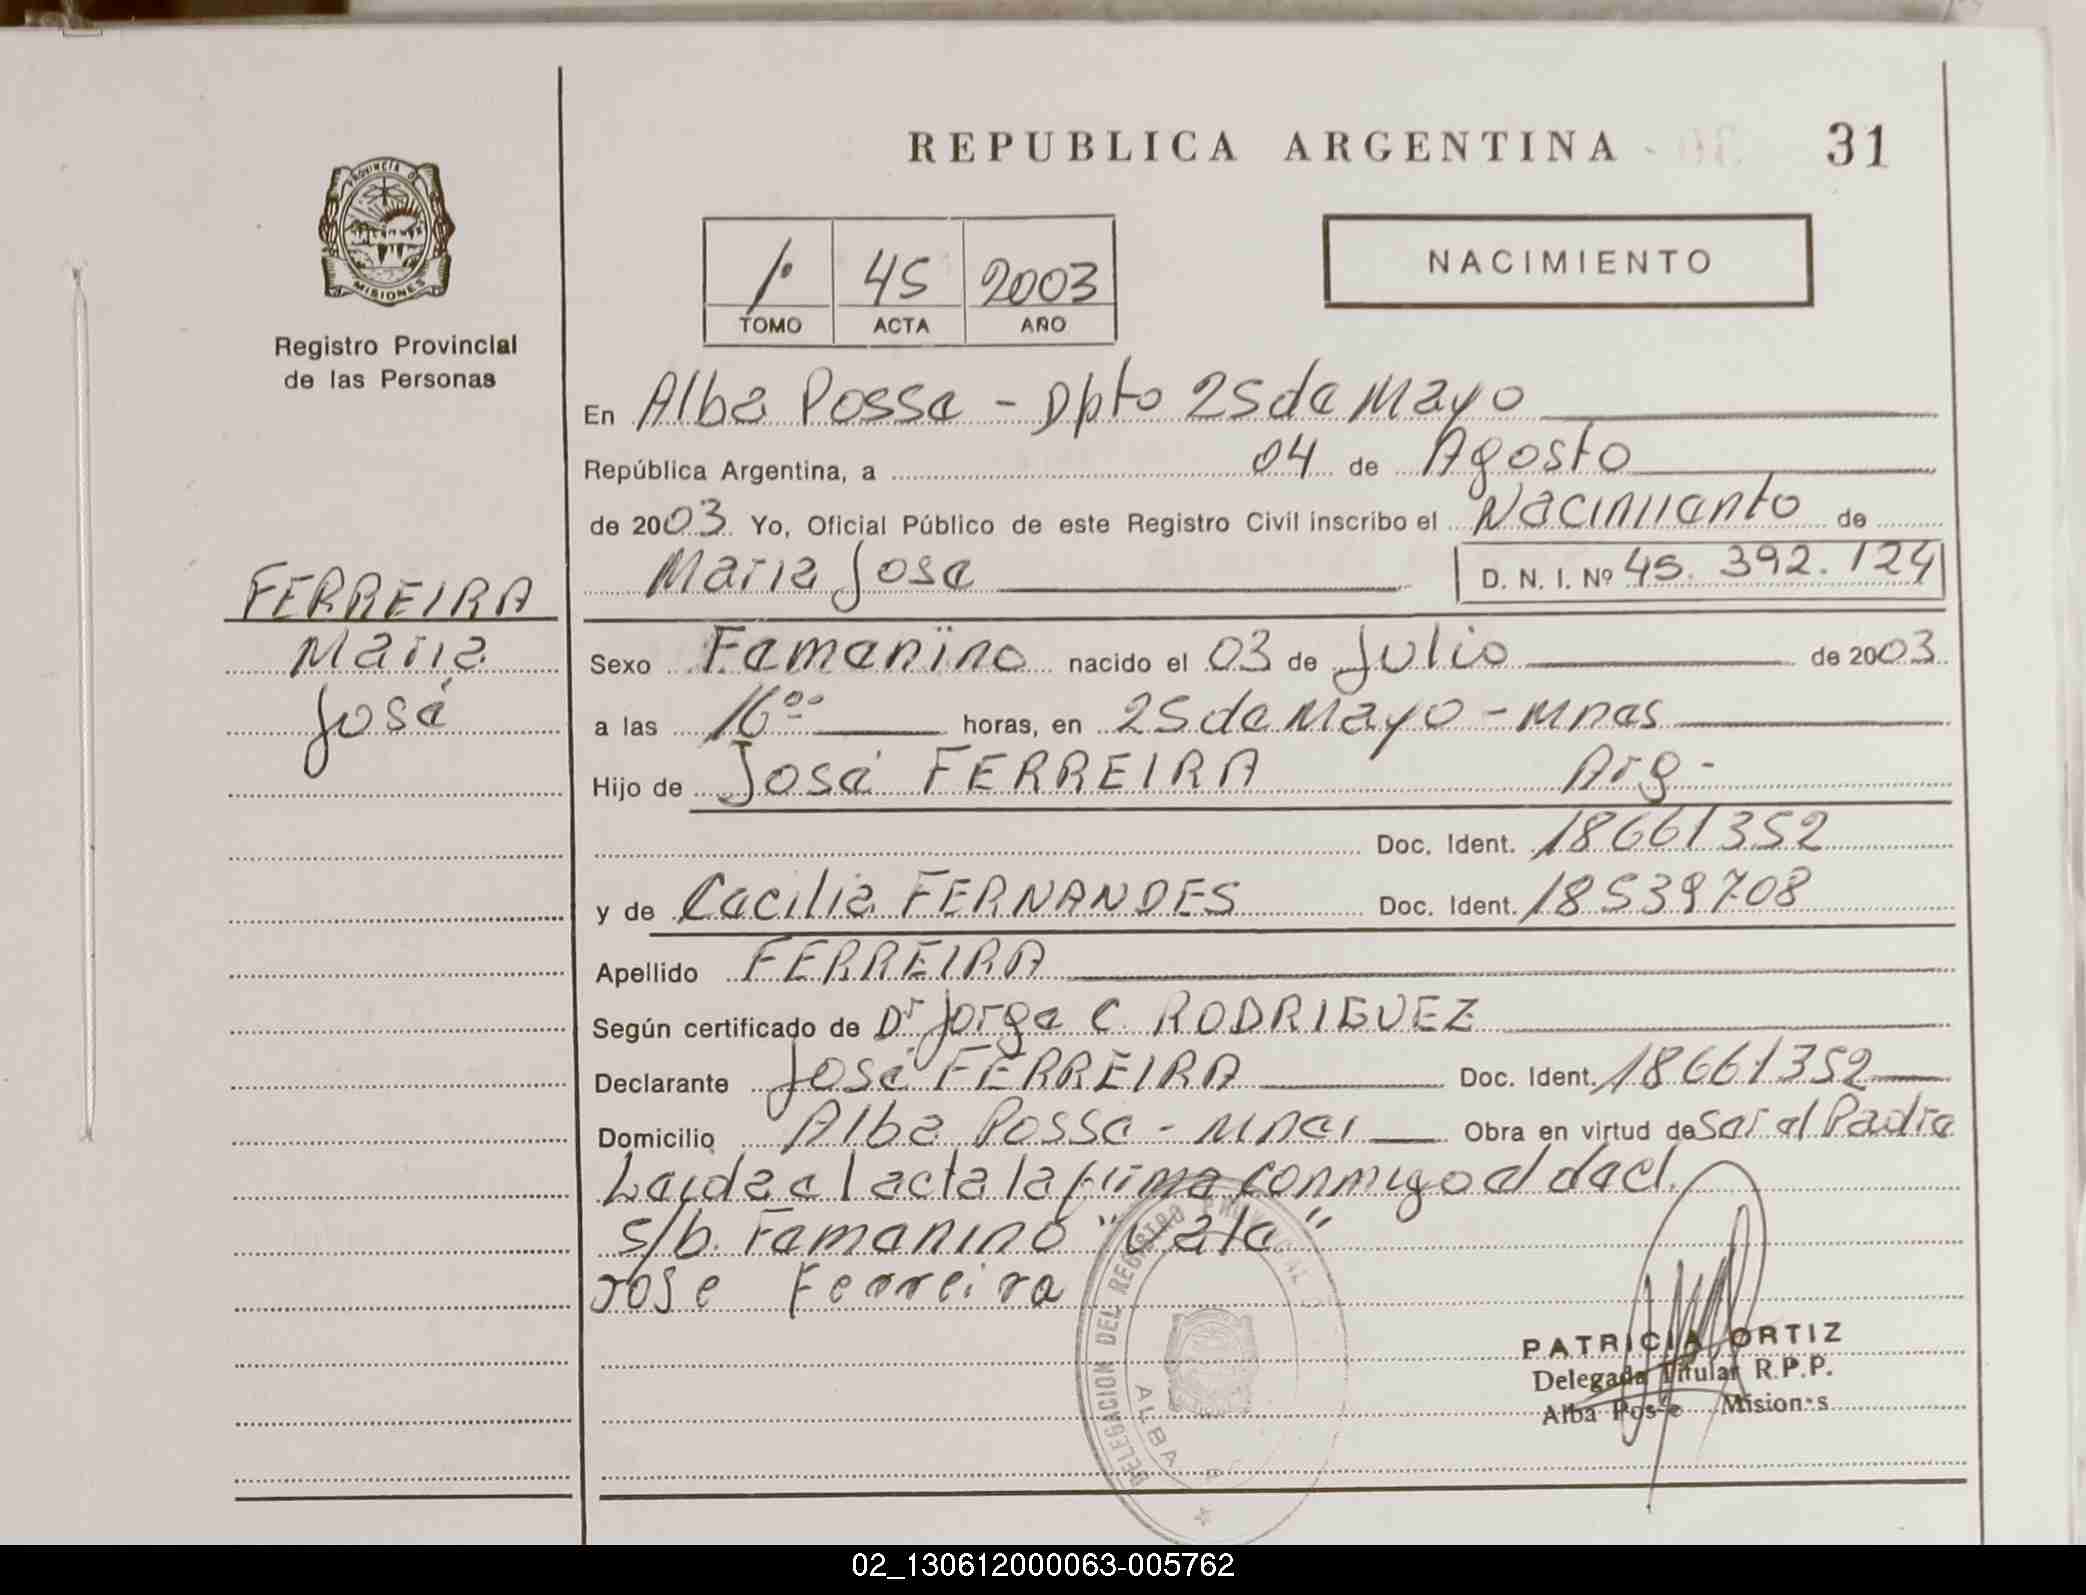 REPUBLICA ARGENTINA 31
PROVINCIA DE
MISIONES
Registro Provincial
de las Personas
1º 45 2003
TOMO ACTA AÑO
NACIMIENTO
En Alba Posse - Dpto 25 de Mayo
República Argentina, a 04 de Agosto
de 2003. Yo, Oficial Público de este Registro Civil inscribo el Nacimiento de
Maria Jose D. N. I. Nº 45.392.124
FERREIRA
Maria
José
Sexo Femenino nacido el 03 de Julio de 2003.
a las 16ºº horas, en 25 de Mayo - Mnes
Hijo de José FERREIRA Arg-
Doc. Ident. 18661352
y de Cecilia FERNANDES Doc. Ident. 18539708
Apellido FERREIRA
Según certificado de Dr Jorge C. RODRIGUEZ
Declarante José FERREIRA Doc. Ident. 18661352
Domicilio Alba Posse - Mnes Obra en virtud de Ser el Padre
Leida el acta la firma conmigo el decl.
s/b. Femenino "Vale"
Jose Ferreira
DELEGACION DEL REGISTRO PROVINCIAL
ALBA
PATRICIA ORTIZ
Delegada Titular R.P.P.
Alba Posse Misiones
02_130612000063-005762